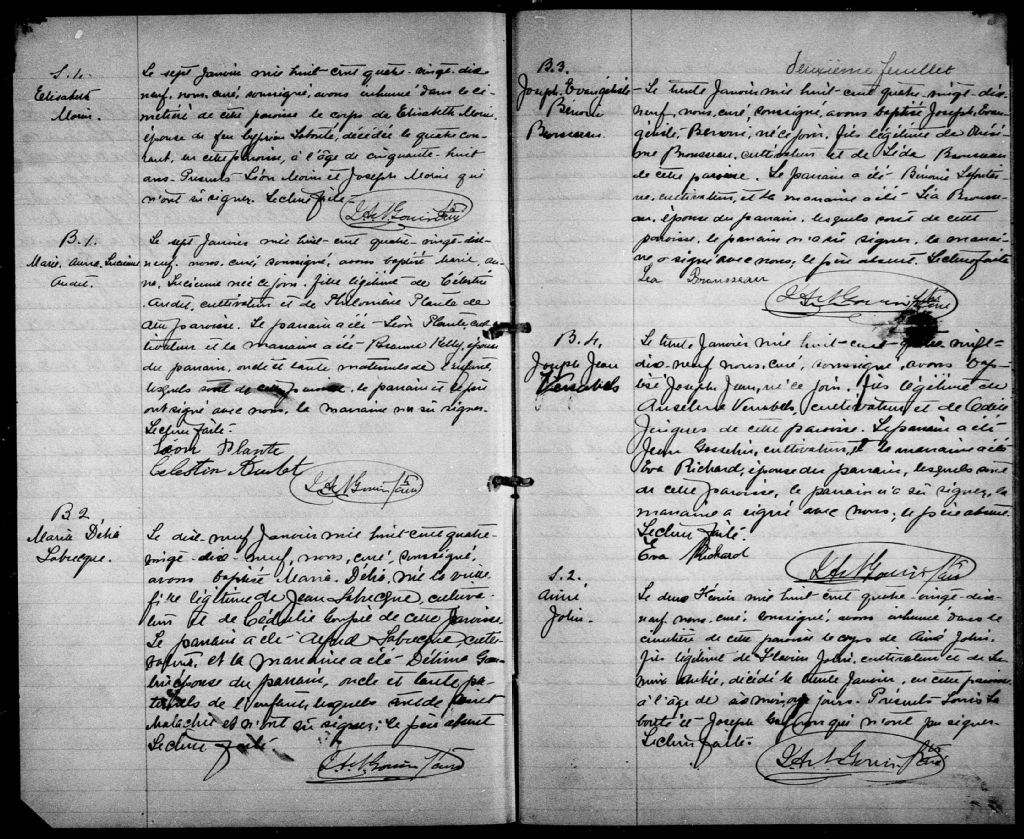 S. 1.
Elisabeth
Morin.
Le sept Janvier mil huit cent quatre-vingt-dix
neuf, nous, curé, soussigné, avons inhumé dans le ci-
metière de cette paroisse le corps de Elisabeth Morin
épouse de feu Cyprien Labonté, décédée le quatre cou-
rant, en cette paroisse, à l'âge de cinquante-huit
ans. Présents Léon Morin et Joseph Morin qui
n'ont su signer. Lecture faite.
Ptre
Curé
B. 1.
Marie, Anna, Lucienne
Audet.
Le sept Janvier mil huit-cent quatre-vingt-dix-
neuf, nous, curé soussigné, avons baptisé Marie, An-
na, Lucienne née ce jour, fille légitime de Célestin
Audet, cultivateur et de Philomène Plante de
cette paroisse. Le parrain a été Léon Plante, cul-
tivateur et la marraine a été Kelly, épouse
du parrain, oncle et tante maternels de l'enfant,
lesquels sont de cette paroisse, le parrain et le père
ont signé avec nous, la marraine n'a su signer.
Lecture faite.
Léon Plante
Celestin Audet
Ptre
Curé
B. 2
Maria Délia
Labrecque.
Le dix-neuf Janvier mil huit cent quatre-
vingt-dix-neuf, nous, curé, soussigné,
avons baptisé Maria Délia, née la veille
fille légitime de Jean Labrecque, cultiva-
teur et de Cédulie de cette paroisse.
Le parrain a été Alfred Labrecque, culti-
vateur, et la marraine a été Délima
épouse du parrain, oncle et tante pa-
ternels de l'enfant, lesquels sont de Saint
Malachie et n'ont su signer; le père absent
Lecture faite
Ptre
Curé
deuxième feuillet
B. 3.
Joseph, Evangéliste
Bénonie
Brousseau.
Le trente Janvier mil huit cent quatre-vingt-dix-
neuf, nous, curé, soussigné, avons baptisé Joseph, Evan-
géliste Benoni, né ce jour, fils légitime de Onési-
me Brousseau, cultivateur et de Léda Brousseau
de cette paroisse. Le parrain a été Benonie
cultivateur, et la marraine a été Léa Brousse-
au, épouse du parrain, lesquels sont de cette
paroisse, le parrain n'a su signer, la marrai-
ne a signé avec nous, le père absent. Lecture faite
Lea Brousseau
Ptre
Curé
B. 4.
Joseph Jean
Venabels
Le trente Janvier mil huit-cent-quatre vingt-
dix-neuf nous, curé, soussigné, avons bap-
tisé Joseph Jean, né ce jour, fils légitime de
Anselme Venabels, cultivateur et de
de cette paroisse. Le parrain a été
Jean Gosselin, cultivateur, et la marraine a été
Eva Richard, épouse du parrain, lesquels sont
de cette paroisse, le parrain n'a su signer, la
marraine a signé avec nous; le père absent.
Lecture faite.
Eva Richard
Curé
S. 2.
Aimé
Jolin.
Le deux Février mil huit cent quatre-vingt-dix-
neuf, nous, curé, soussigné, avons inhumé dans le
cimetière de cette paroisse le corps de Aimé Jolin,
fils légitime de Flavien Jolin, cultivateur et de
décédé le trente Janvier, en cette paroisse
à l'âge de jours. Présents Louis La-
bonté et Joseph qui n'ont pu signer.
Lecture faite.
Ptre
Curé